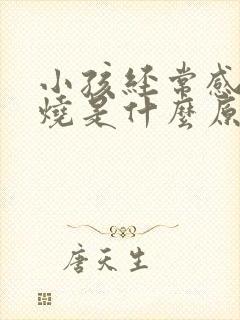 小孩經常感
燒是什麼原
唐天生